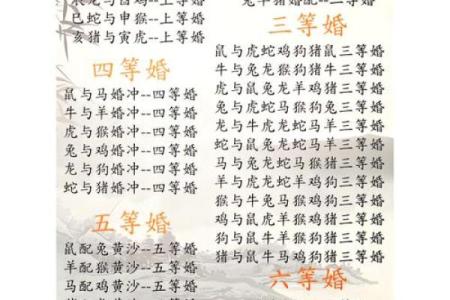 辰龙与酉鸡--上等婚
巳蛇与申猴--上等婚
亥猪与寅虎--上等婚
四等婚
鼠与马婚冲--四等婚
牛与羊婚冲--四等婚
虎与猴婚冲--四等婚
兔与鸡婚冲--四等婚
龙与狗婚冲--四等婚
蛇与猪婚冲--四等婚
五等婚
鼠配兔黄沙--五等婚
羊配猪黄沙--五等婚
马配鸡黄沙--五等婚
兔羊猪婚配--二等婚
三等婚
鼠与虎蛇鸡狗猪鼠三等婚
牛与兔龙猴狗猪牛三等婚
虎与鼠兔龙羊鸡猪三等婚
兔与虎蛇马猴狗三等婚
龙与牛虎龙蛇马羊三等婚
蛇与鼠兔龙蛇羊狗三等婚
马与兔龙蛇马猴猪三等婚
羊与虎龙蛇羊鸡狗三等婚
猴与牛兔马羊猴狗三等婚
鸡与鼠虎羊猴狗猪三等婚
狗与鼠牛羊猴狗猪三等婚
六等婚